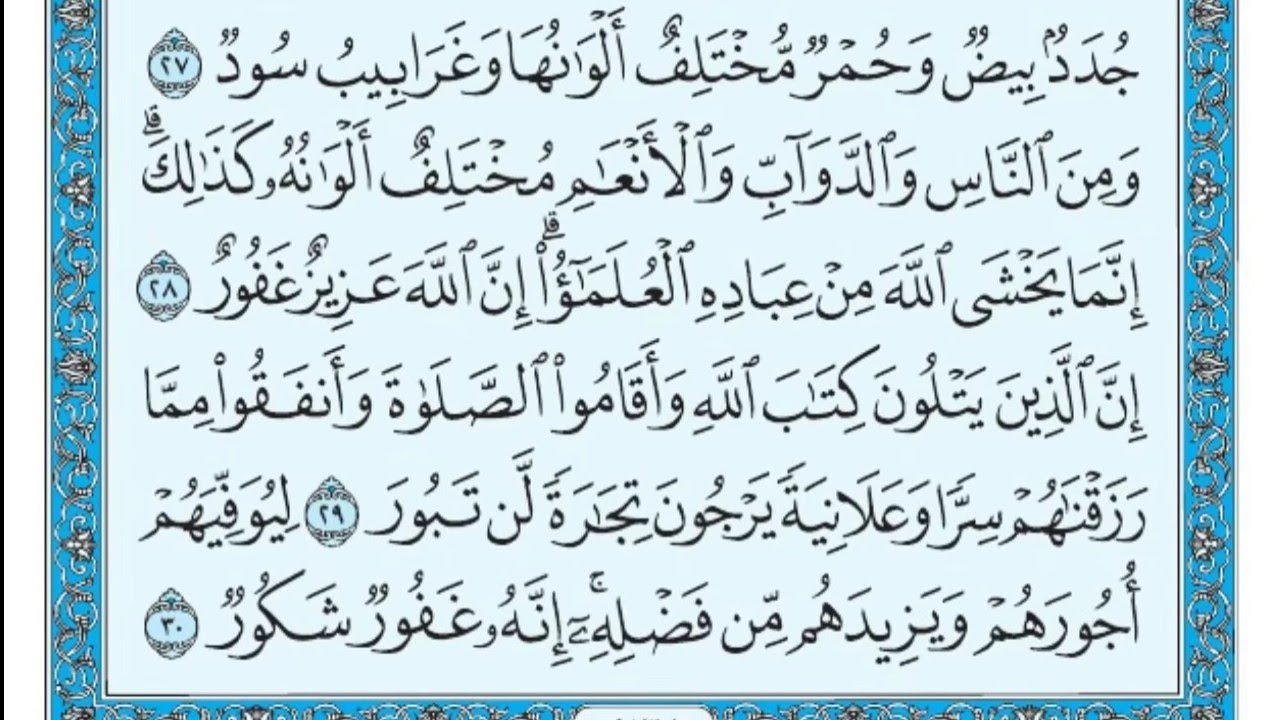 جُدَدٌۢ بِيضٌ وَحُمْرٌ مُّخْتَلِفٌ أَلْوَٰنُهَا وَغَرَابِيبُ سُودٌ ٢٧
وَمِنَ ٱلنَّاسِ وَٱلدَّوَآبِّ وَٱلْأَنْعَٰمِ مُخْتَلِفٌ أَلْوَٰنُهُۥ كَذَٰلِكَۗ
إِنَّمَا يَخْشَى ٱللَّهَ مِنْ عِبَادِهِ ٱلْعُلَمَٰٓؤُا۟ۗ إِنَّ ٱللَّهَ عَزِيزٌ غَفُورٌ ٢٨
إِنَّ ٱلَّذِينَ يَتْلُونَ كِتَٰبَ ٱللَّهِ وَأَقَامُوا۟ ٱلصَّلَوٰةَ وَأَنفَقُوا۟ مِمَّا
رَزَقْنَٰهُمْ سِرًّا وَعَلَانِيَةً يَرْجُونَ تِجَٰرَةً لَّن تَبُورَ ٢٩ لِيُوَفِّيَهُمْ
أُجُورَهُمْ وَيَزِيدَهُم مِّن فَضْلِهِۦٓۚ إِنَّهُۥ غَفُورٌ شَكُورٌ ٣٠